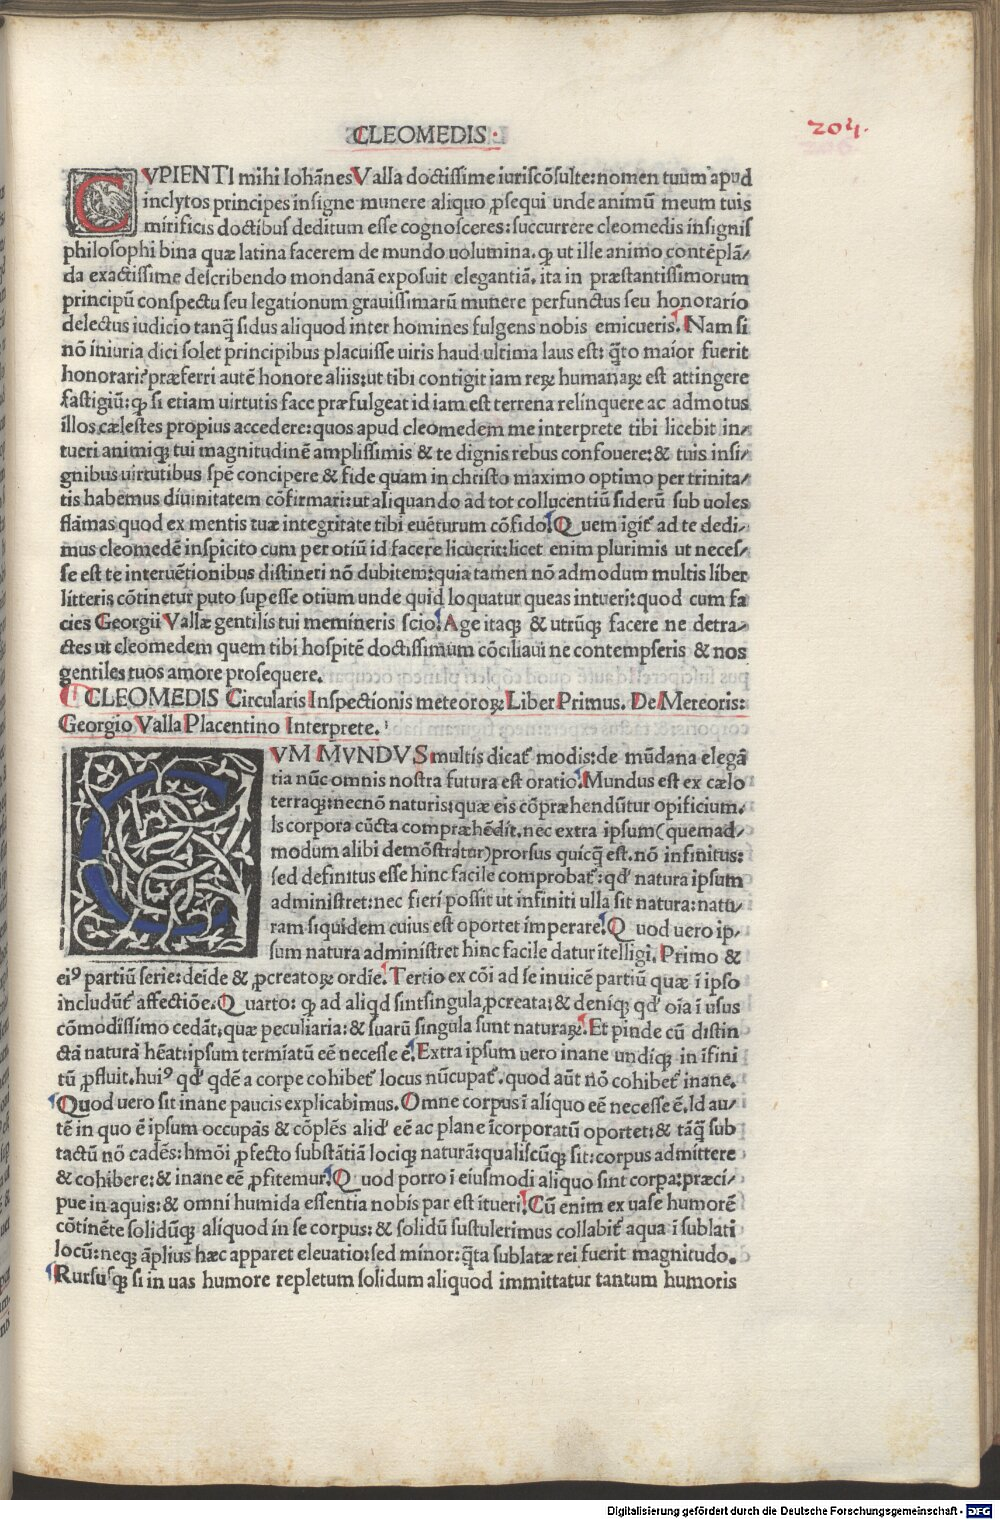 CLEOMEDIS.
204.
CVPIENTI mihi Iohānes Valla doctissime iuriscōsulte: nomen tuum apud
inclytos principes insigne munere aliquo ꝓsequi unde animū meum tuis
mirificis doctibus deditum esse cognosceres: succurrere cleomedis insignis
philosophi bina quæ latina facerem de mundo uolumina. ꝙ ut ille animo contēplā/
da exactissime describendo mondanā exposuit elegantiā. ita in præstantissimorum
principū conspectu seu legationum grauissimarū munere perfunctus seu honorario
delectus iudicio tanq̄ sidus aliquod inter homines fulgens nobis emicueris. Nam si
nō iniuria dici solet principibus placuisse uiris haud ultima laus est: q̄to maior fuerit
honorari? præferri autē honore aliis: ut tibi contigit iam reꝝ humanaꝝ est attingere
fastigiū: ꝙ si etiam uirtutis face præfulgeat id iam est terrena relinquere ac admotus
illos cælestes propius accedere: quos apud cleomedem me interprete tibi licebit in/
tueri animiqꝫ tui magnitudinē amplissimis & te dignis rebus confouere: & tuis insi/
gnibus uirtutibus spē concipere & fide quam in christo maximo optimo per trinita/
tis habemus diuinitatem cōfirmari: ut aliquando ad tot collucentiū siderū sub uoles
flāmas quod ex mentis tuæ integritate tibi euēturum cōfido. Quem igiť ad te dedi/
mus cleomedē inspicito cum per otiū id facere licuerit: licet enim plurimis ut neces/
se est te interuētionibus distineri nō dubitem: quia tamen nō admodum multis liber
litteris cōtinetur puto supesse otium unde quid loquatur queas intueri: quod cum fa
cies Georgii Vallæ gentilis tui memineris scio. Age itaqꝫ & utrūqꝫ facere ne detra/
ctes ut cleomedem quem tibi hospitē doctissimum cōciliaui ne contempseris & nos
gentiles tuos amore prosequere.
CLEOMEDIS Circularis Inspectionis meteoroꝝ Liber Primus. De Meteoris:
Georgio Valla Placentino Interprete.
CVM MVNDVS multis dicať modis: de mūdana elegā
tia nūc omnis nostra futura est oratio. Mundus est ex cælo
terraqꝫ: necnō naturis: quæ eis cōpræhendūtur opificium.
Is corpora cūcta compræhēdit. nec extra ipsum (quemad/
modum alibi demōstratur) prorsus quicq̄ est. nō infinitus:
sed definitus esse hinc facile comprobať: qd' natura ipsum
administret: nec fieri possit ut infiniti ulla sit natura: natu/
ram siquidem cuius est oportet imperare. Quod uero ip/
sum natura administret hinc facile datur ītelligi. Primo &
eiꝰ partiū serie: deīde & ꝓcreatoꝝ ordīe. Tertio ex cōi ad se inuicē partiū quæ ī ipso
includūť affectiōe. Quarto: ꝙ ad aliqd sint singula ꝓcreata: & deniqꝫ qd' oīa ī usus
cōmodissimo cedāt, quæ peculiaria: & suarū singula sunt naturaꝝ. Et pinde cū distin
ctā naturā hēat: ipsum termīatū eē necesse ē. Extra ipsum uero inane undiqꝫ in īfini
tū ꝓfluit. huiꝰ qd' qdē a corpe cohibeť locus nūcupať. quod aūt nō cohibeť inane.
Quod uero sit inane paucis explicabimus. Omne corpus ī aliquo eē necesse ē. Id au/
tē in quo ē ipsum occupās & cōplēs alid' eē ac plane īcorporatū oportet: & tāq̄ sub
tactū nō cadēs: hmōi ꝓfecto substātiā lociqꝫ naturā: qualiscūqꝫ sit: corpus admittere
& cohibere: & inane eē ꝓfitemur. Quod porro ī eiusmodi aliquo sint corpa: præci/
pue in aquis: & omni humida essentia nobis par est ītueri. Cū enim ex uase humorē
cōtinēte solidūqꝫ aliquod in se corpus: & solidū sustulerimus collabiť aqua ī sublati
locū: neqꝫ āplius hæc apparet eleuatio: sed minor: q̄ta sublatæ rei fuerit magnitudo.
Rursusqꝫ si in uas humore repletum solidum aliquod immittatur tantum humoris
Digitalisierung gefördert durch die Deutsche Forschungsgemeinschaft - DFG